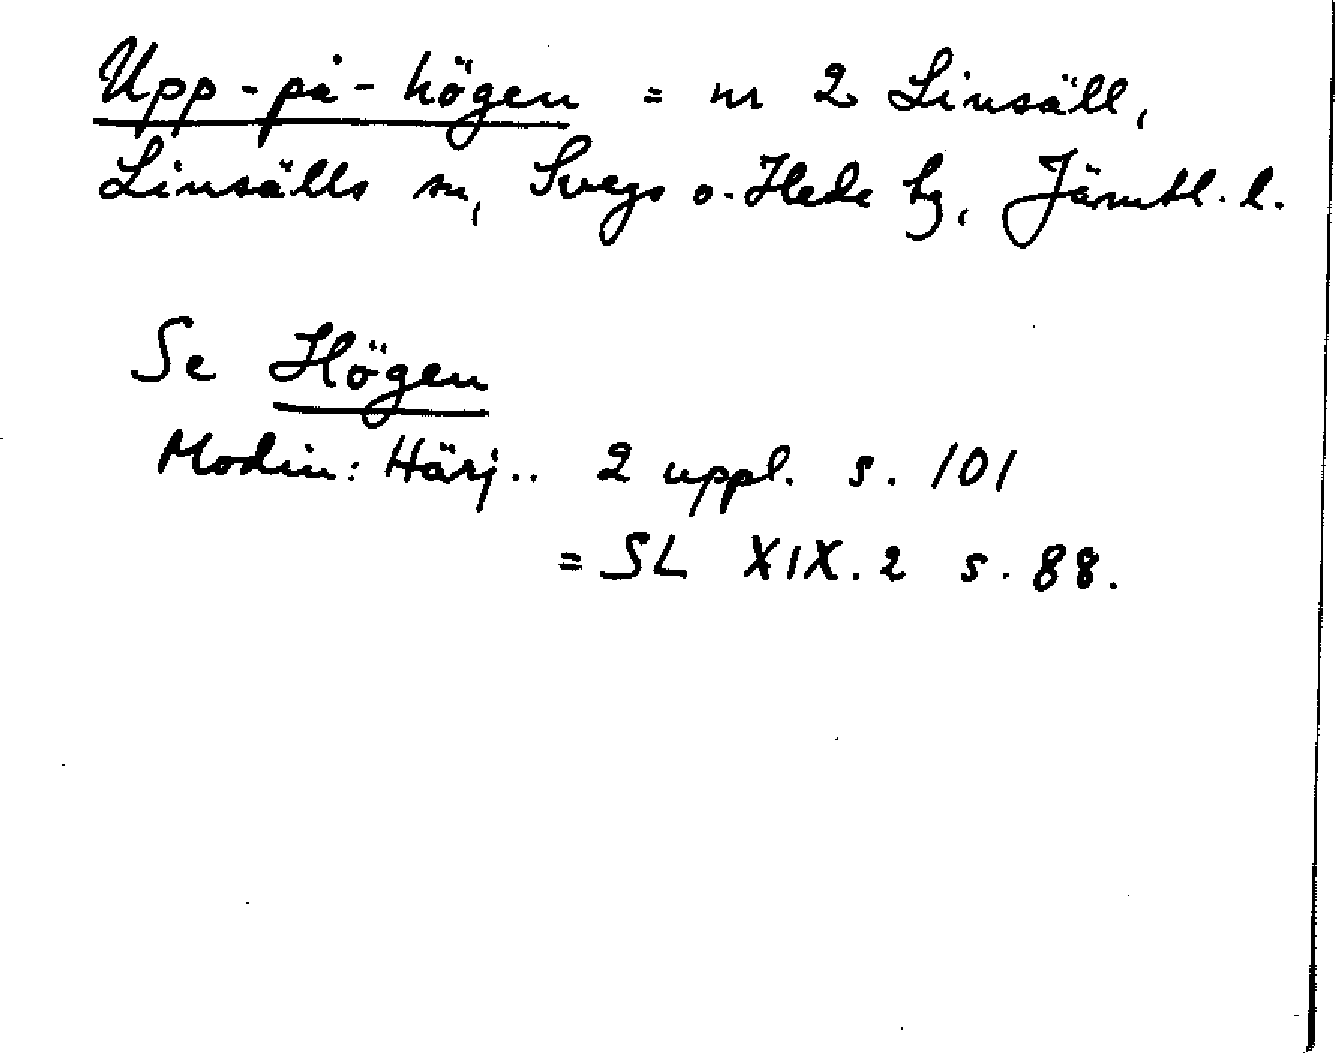 Upp-på-högen = nr 2 Linsäll,
Linsälls sn, Svegs o. Hede hg, Jämtl. l.
Se Högen
Modin: Härj.. 2 uppl. s. 101
= SL XIX. 2 s. 88.